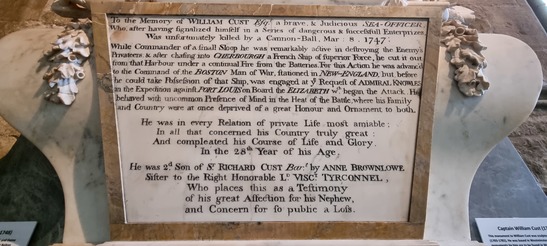 To the Memory of WILLIAM CUST Esqr. a brave, & Judicious SEA-OFFICER
Who, after having signalized himself in a Series of dangerous & successfull Enterprizes,
Was unfortunately killed by a Cannon-Ball, Mar: 8. 1747.
While Commander of a small Sloop he was remarkably active in destroying the Enemy's
Privateers & after chasing into CHERBOURGH a French Ship of superior Force, he cut it out
from that Harbour under a continual Fire from the Batteries. For this Action he was advanc'd
to the Command of the BOSTON Man of War, stationed in NEW-ENGLAND, but before
he could take Possession of that Ship, was engaged at ye Request of ADMIRAL KNOWLES
in the Expedition against PORT LOUIS on Board the ELIZABETH wch began the Attack. He
behaved with uncommon Presence of Mind in the Heat of the Battle, where his Family
and Country were at once deprived of a great Honour and Ornament to both.
He was in every Relation of private Life most amiable;
In all that concerned his Country truly great:
And compleated his Course of Life and Glory
In the 28th Year of his Age.
He was 2d Son of Sr RICHARD CUST Bart by ANNE BROWNLOWE
Sister to the Right Honorable Ld VISCt TYRCONNEL,
Who places this as a Testimony
of his great Affection for his Nephew,
and Concern for so public a Loss.
Captain William Cust